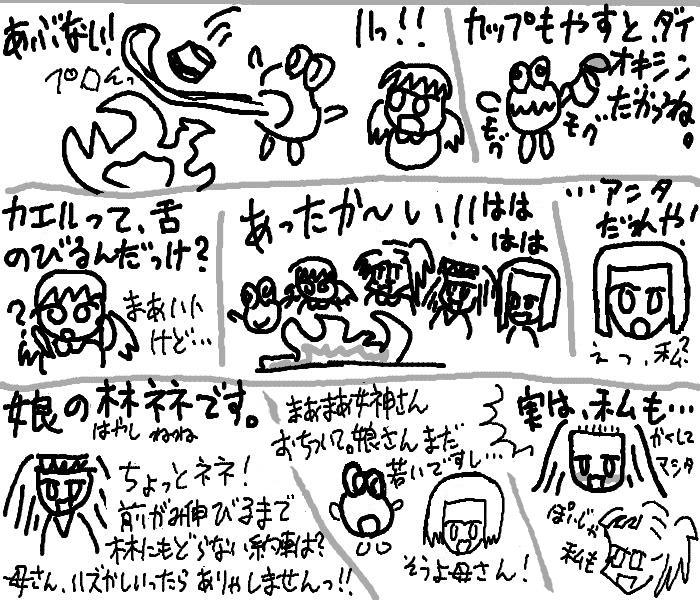 カップもやすと、ダイ
オキシン
だからね。
モグ
モグ
!!
あぶない!
ペロんっ
…アンタ
だれや!
えっ、私?
あったか〜い!!
はは
はは
カエルって、舌
のびるんだっけ?
まあいい
けど…
実は、私も…
かくして
マシタ
ぽいじゃ
私も
まあまあ女神さん
おちついて。娘さんまだ
若いですし…
そうよ母さん!
娘の林ネネです。
はやし ねね
ちょっとネネ!
前がみ伸びるまで
林にもどらない約束は?
母さん、ハズかしいったらありゃしませんっ!!